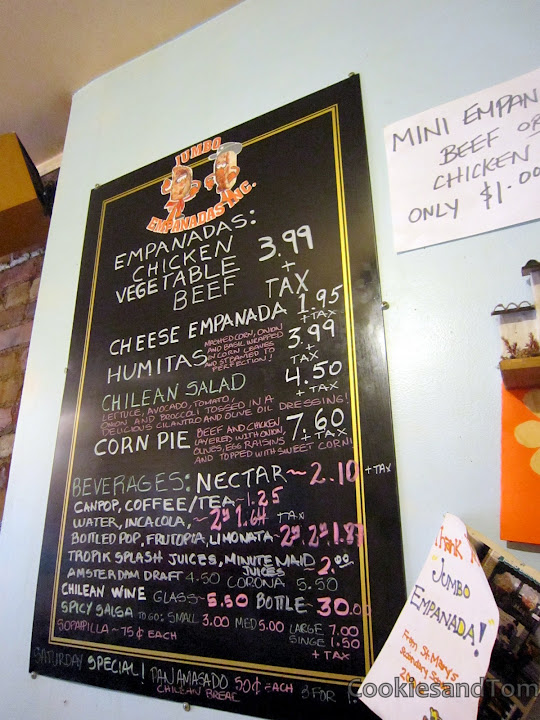 JUMBO
EMPANADAS INC.
EMPANADAS:
CHICKEN
VEGETABLE
BEEF
3.99
+
TAX
CHEESE EMPANADA 1.95
+ TAX
HUMITAS
MASHED CORN, ONION
AND BASIL WRAPPED
IN CORN LEAVES
AND STEAMED TO
PERFECTION!
3.99
+
TAX
CHILEAN SALAD 4.50
+ TAX
LETTUCE, AVOCADO, TOMATO,
ONION AND BROCCOLI TOSSED IN A
DELICIOUS CILANTRO AND OLIVE OIL DRESSING!
CORN PIE
BEEF AND CHICKEN
LAYERED WITH ONION,
OLIVES, EGG RAISINS
AND TOPPED WITH SWEET CORN!
7.60
+ TAX
BEVERAGES: NECTAR ~ 2.10 + TAX
CANPOP, COFFEE/TEA ~ 1.25
WATER, INCACOLA, ~ 1.64 TAX
BOTTLED POP, FRUTOPIA, LIMONATA ~ 1.87
TROPIK SPLASH JUICES, MINUTE MAID 2.00
JUICES
AMSTERDAM DRAFT 4.50 CORONA 5.50
CHILEAN WINE GLASS ~ 5.50 BOTTLE ~ 30.00
SPICY SALSA TO GO: SMALL 3.00 MED 5.00 LARGE 7.00
SOPAIPILLA ~ 75¢ EACH SINGE 1.50
+ TAX
SATURDAY SPECIAL! PAN AMASADO 50¢ EACH 3 FOR
CHILEAN BREAD
MINI EMPAN
BEEF OR
CHICKEN
ONLY $1.00
Thank
JUMBO
EMPANADA!
From St. Mary's
Secondary
CookiesandTom